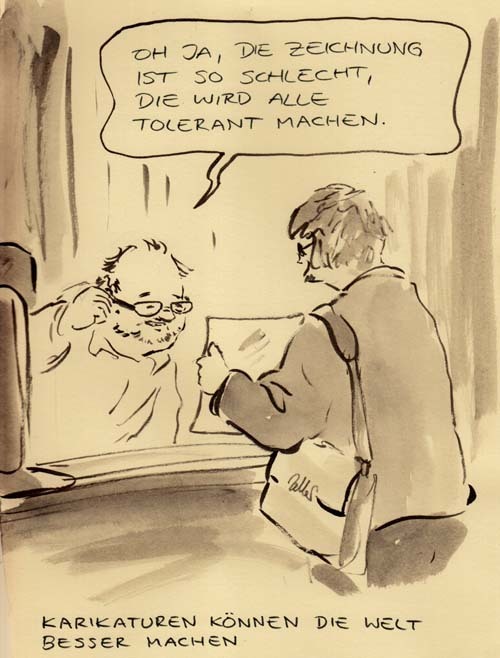 OH JA, DIE ZEICHNUNG
IST SO SCHLECHT,
DIE WIRD ALLE
TOLERANT MACHEN.
KARIKATUREN KÖNNEN DIE WELT
BESSER MACHEN